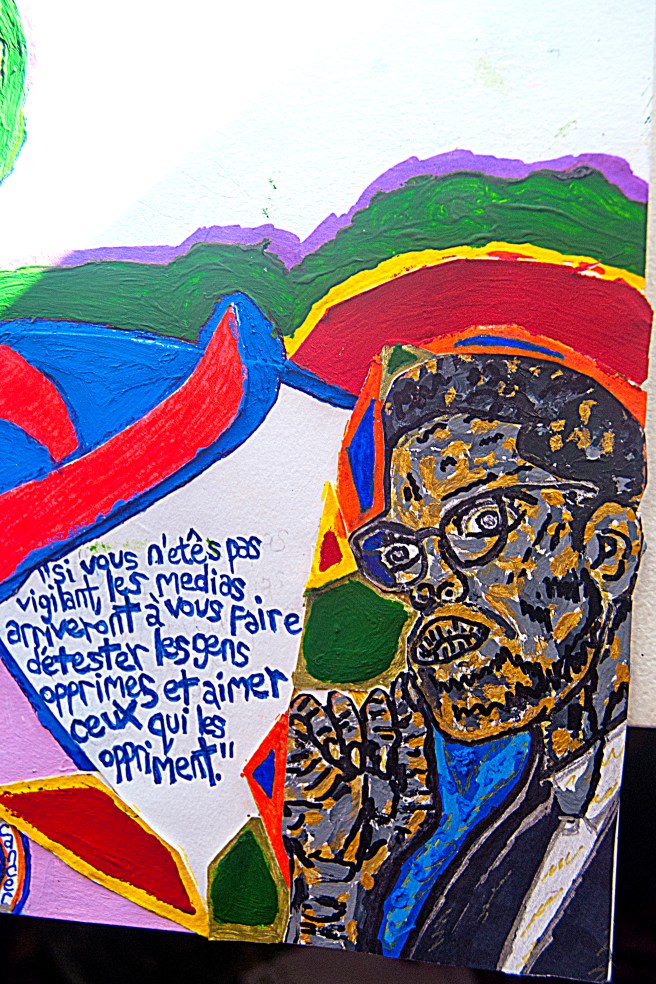 "si vous n'etês pas
vigilant, les medias
arriveront à vous faire
détester les gens
opprimes et aimer
ceux qui les
oppriment."